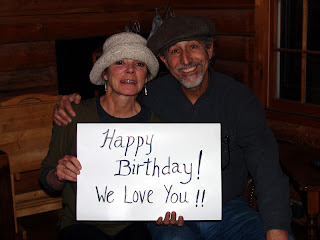 Happy
Birthday!
We Love You!!